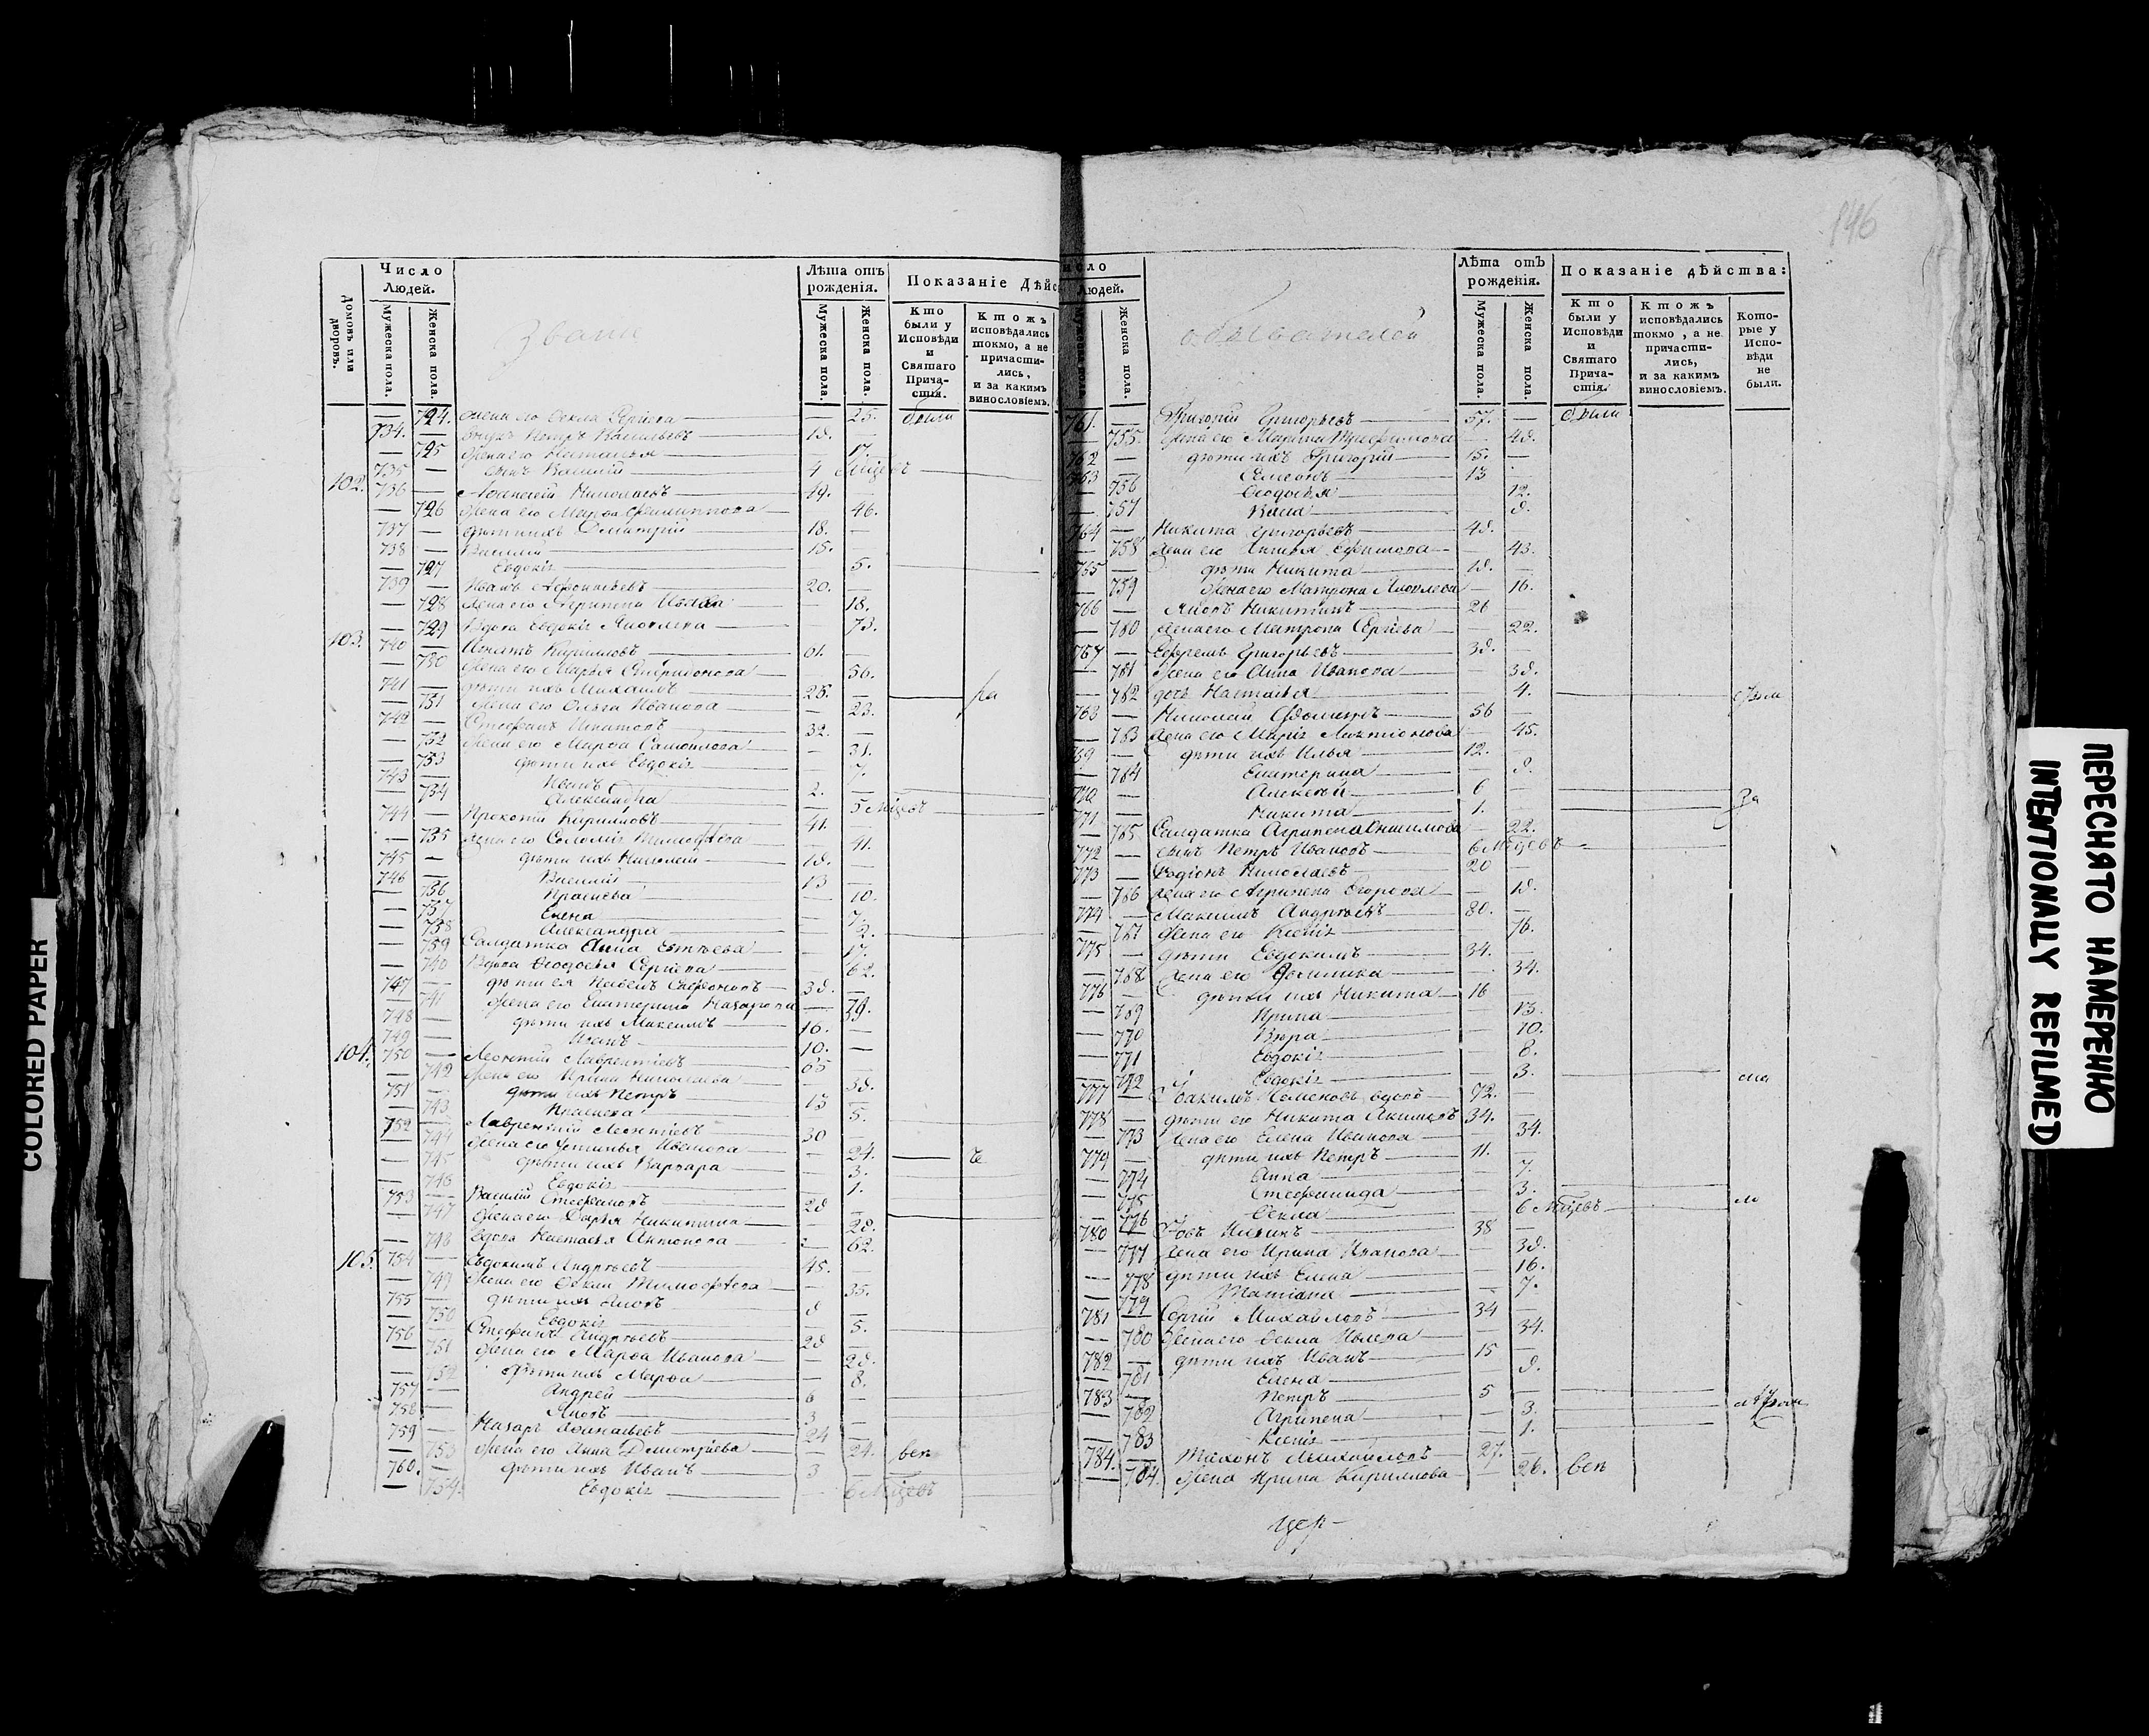 146
Число Людей.
Домовъ или дворовъ.
Мужеска пола.
Женска пола.
Званіи
Лѣта отъ рожденія.
Мужеска пола.
Женска пола.
Показаніе Дѣйс
Кто были у Исповѣди и Святаго Причастія.
Ктожъ исповѣдались токмо, а не причастились, и за какимъ винословіемъ.
— 724. жена его Фекла Сергіева — 25. были
734. — внукъ Петръ Васильевъ 18. —
— 725 жена его Наталья — 17.
735 — сынъ Василій 4 мѣцевъ
102. 736 — Николаевъ 49. —
— 726 жена его Марфа Филиппова — 46.
737 — дѣти ихъ Димитрій 18. —
738 — Василій 15. —
— 727 Евдокія 5.
739 — Иванъ Афонасьевъ 20. —
— 728 жена его Агрипена — 18.
— 729 Вдова Евдокія Яковлева — 73.
103. 740 — Игнатъ Кириловъ 61. —
— 730 жена его Марья Спиридонова — 56.
741 — дѣти ихъ Михаилъ 25. — ра
— 731 жена его Ольга Иванова — 23.
742 — Стефанъ Игнатовъ 32. —
— 732 жена его Марфа Самойлова — 31.
— 733 дѣти ихъ Евдокія — 7.
743 — Иванъ 2.
— 734 Александра — 5 мѣцевъ
744 — Прокопій Кириловъ 41. —
— 735 жена его Соломія Тимофѣева — 41.
745 — дѣти ихъ Николай 18. —
746 — Василій 13 —
— 736 Прасковья — 10.
— 737 Елена — 7.
— 738 Александра — 2.
— 739 Салдатка Анна Евтѣева — 17.
— 740 Вдова Феодосья Сергіева — 62.
747 — дѣти ея 38. —
— 741 жена его Екатерина Назарова — 39.
748 — дѣти ихъ Максимъ 16. —
749 — Иванъ 10. —
104. 750 — Леонтій Лаврентіевъ 65
— 742 жена его Ирина Николаева — 58.
751 — дѣти ихъ Петръ 13 —
— 743 5.
752 — Лаврентій Леонтіевъ 30
— 744 жена его Устинья Иванова — 24. че
— 745 дѣти ихъ Варвара — 3.
— 746 Евдокія 1.
753 — Василій Стефановъ 28 —
— 747 жена его Дарья Никитина — 28.
— 748 Вдова Настасья Антонова — 62.
105. 754 — Евдокимъ Андрѣевъ 45. —
— 749 жена его Фекла Тимофѣева — 35.
755 — дѣти ихъ Яковъ 8
— 750 Евдокія — 5.
756 — Стефанъ Андрѣевъ 28
— 751 жена его Марфа Иванова — 28.
— 752 дѣти ихъ Марфа — 8.
757 — Андрей 6
758 — Яковъ 3
759 — Назаръ Афанасьевъ 24
— 753 жена его Анна Дмитріева — 24. вен
760. — дѣти ихъ Иванъ 3
— 754. Евдокія — 6 мѣцевъ
исло Людей.
Женска пола.
обывателей
Лѣта отъ рожденія.
Мужеска пола.
Женска пола.
Показаніе дѣйства:
Кто были у Исповѣди и Святаго Причастія.
Ктожъ исповѣдались токмо, а не причастились, и за какимъ винословіемъ.
Которые у Исповѣди не были.
761. — Григорій Григорьевъ 57. — были
— 755. жена его Марина Трофимова — 48.
762 — дѣти ихъ Григорій 15. —
763 Семеонъ 13
— 756 Феодосья 12.
— 757 8.
764 — Никита Григорьевъ 48.
— 758 жена его Ефимова 43.
765 — дѣти Никита 18. —
— 759 жена его Матрона Яковлева — 16.
766 — Яковъ Никитинъ 26
— 760 жена его Матрона Сергіева — 22.
767 — Ефремъ Григорьевъ 38.
— 761 жена его Анна Иванова 38.
— 762 дочь Настасья — 4.
768 — Николай 56
— 763 жена его Марія — 45.
769 — дѣти ихъ Илья 12.
— 764 Екатерина 8.
770 — Алексѣй 6 За
771 — Никита 1.
— 765 Салдатка Агрипена Онисимова — 22.
772 — сынъ Петръ Ивановъ 6 мѣцевъ
773 — Родіонъ Николаевъ 20
— 766 жена его Агрипена Егорова — 18.
774 — Максимъ Андрѣевъ 80. —
— 767 жена его Ксенія 76.
775 — дѣти Евдокимъ 34.
— 768 жена его 34.
776 — дѣти ихъ Никита 16 —
— 769 Ирина — 13.
— 770 Вѣра — 10.
— 771 Евдокія — 8.
— 772 Евдокія — 3. ма
777 — Іоакимъ Семеновъ вдовъ 72.
778 — дѣти его Никита Акимовъ 34.
— 773 жена его Елена Иванова 34.
779 — дѣти ихъ Петръ 11. —
— 774 Анна — 7.
— 775 Стефанида — 3.
— 776 Фекла — 6 мѣцевъ
780 — Іовъ Ильинъ 38
— 777 жена его Ирина Иванова — 38.
— 778 дѣти ихъ Елена — 16.
— 779 Татіана — 7.
781 — Сергій Михайловъ 34
— 780 жена его Фекла — 34.
782 — дѣти ихъ Иванъ 15
— 781 Елена — 8.
783 — Петръ 5
— 782 Агрипена — 3.
— 783 Ксенія — 1.
784. — Тихонъ Михайловъ 27. —
— 784. жена Ирина Кирилова — 26. вен
цер-
COLORED PAPER
ПЕРЕСНЯТО НАМЕРЕННО
INTENTIONALLY REFILMED